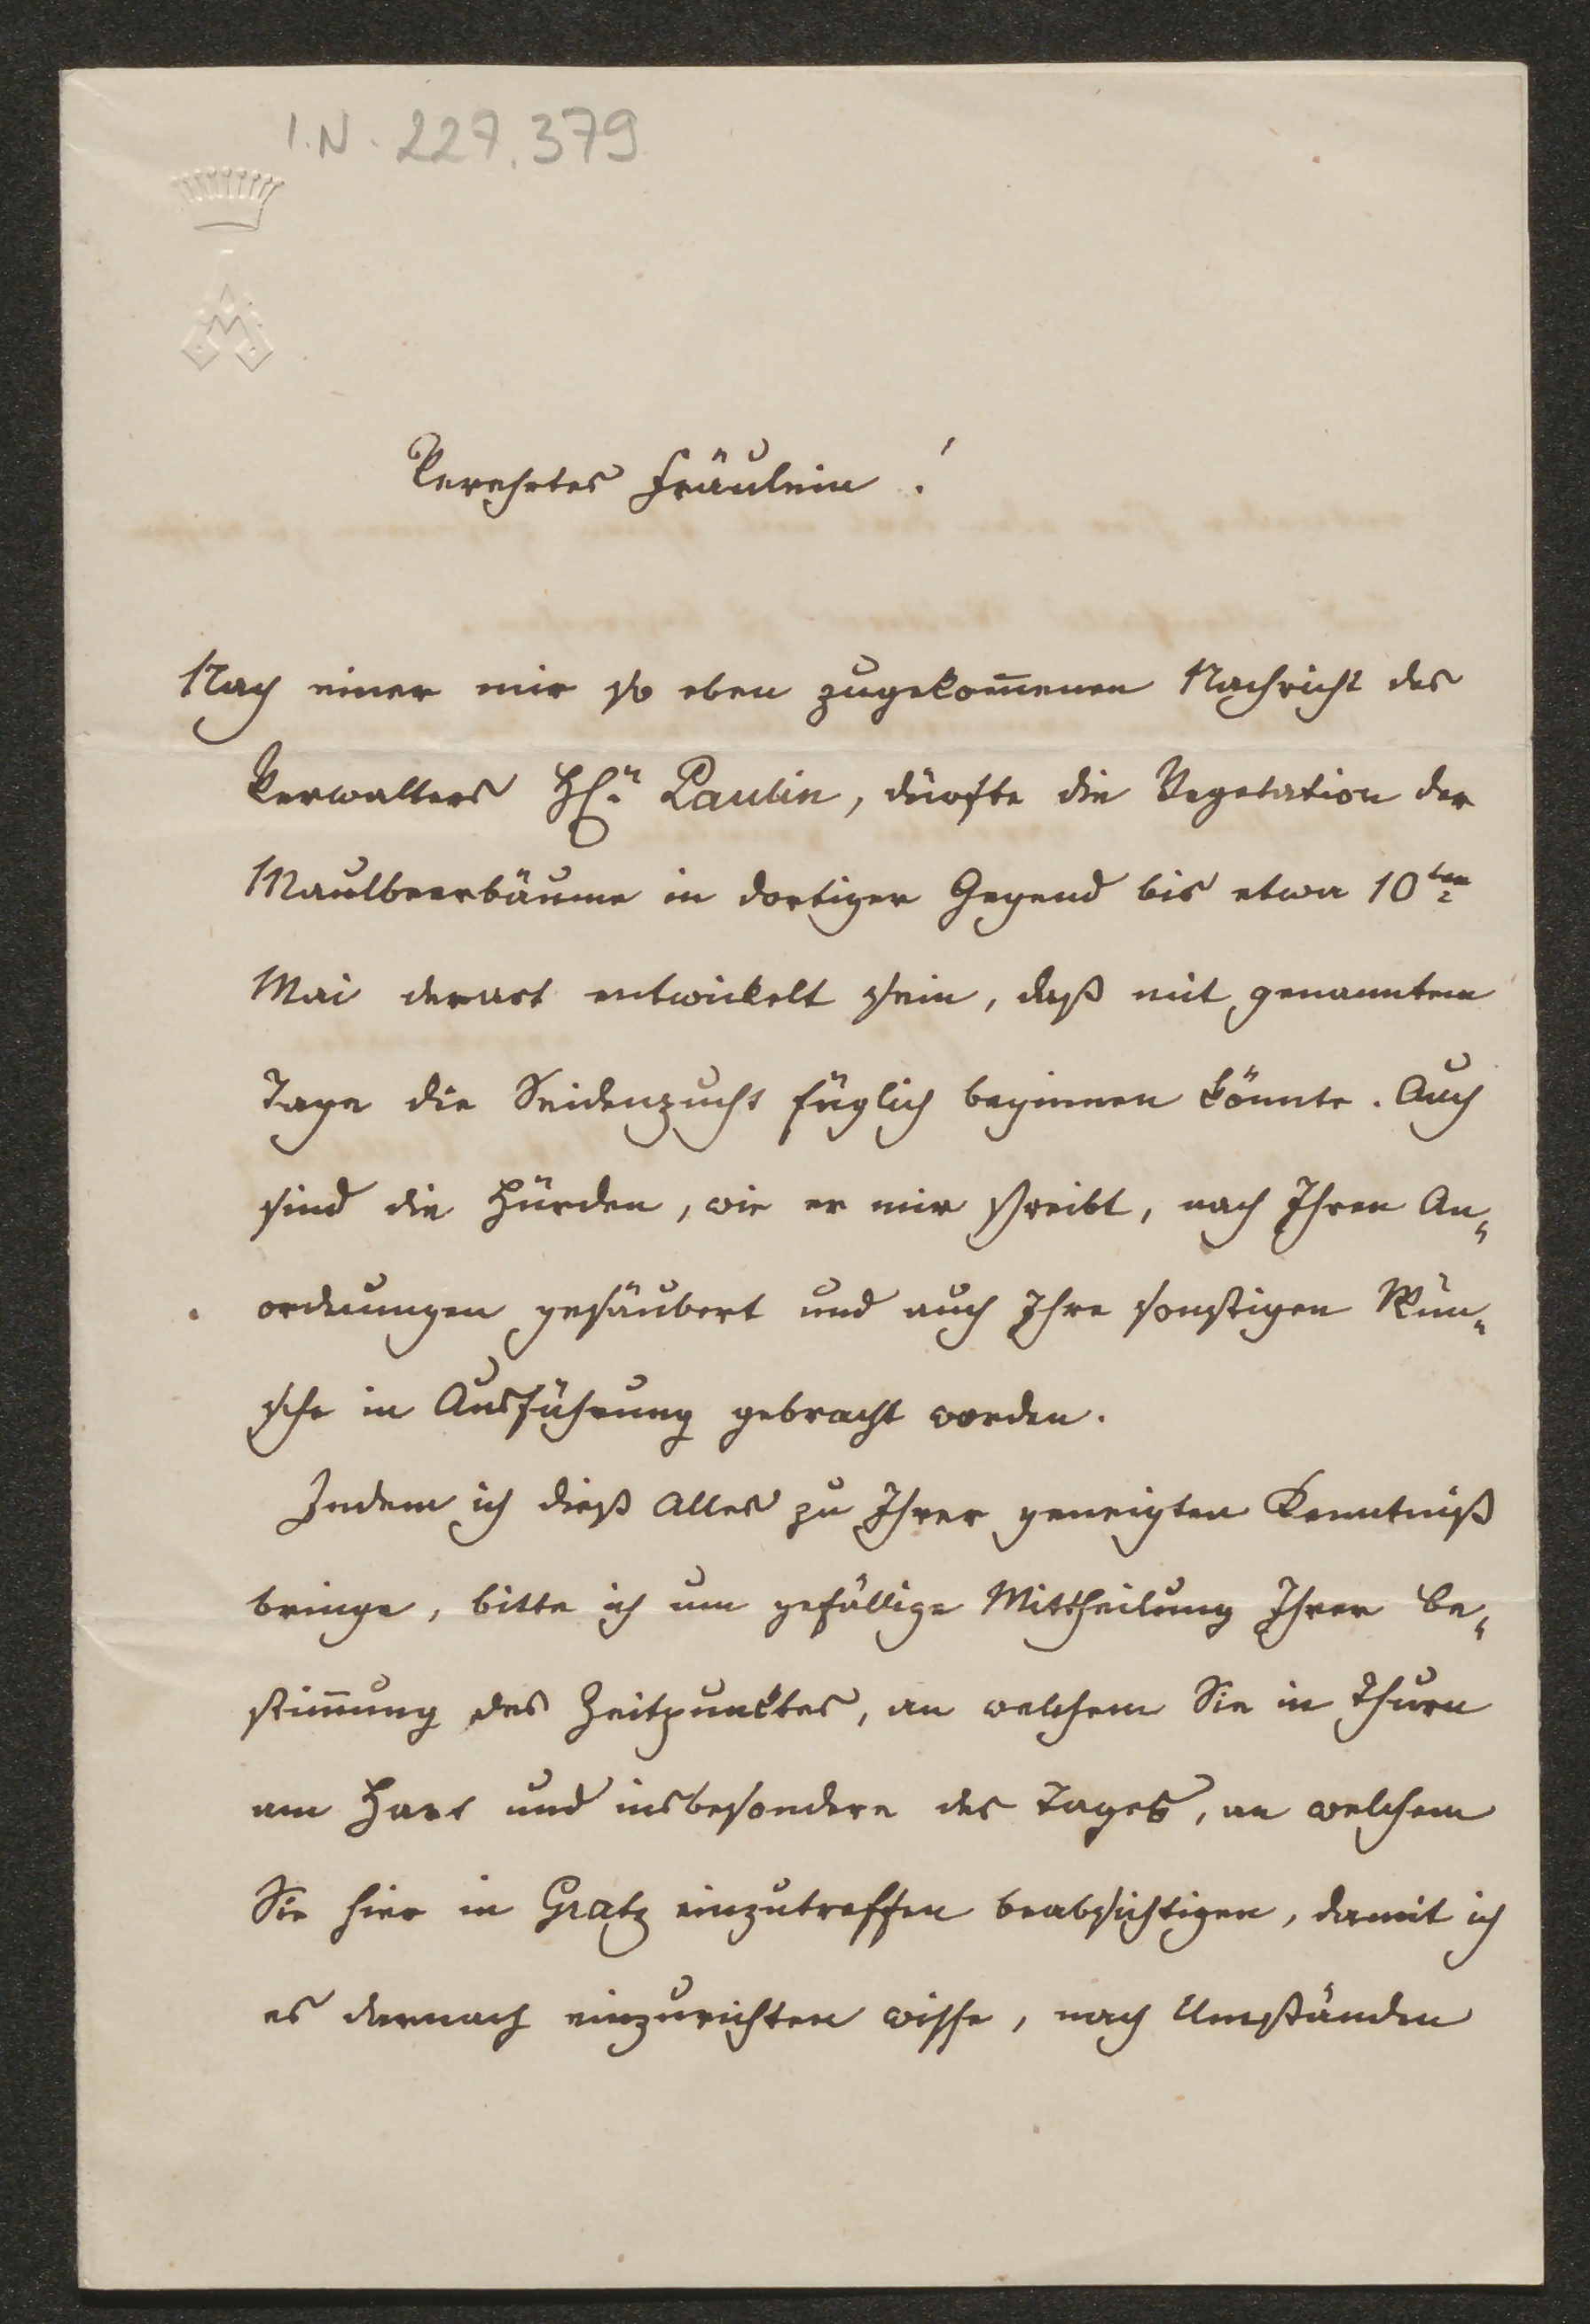 I.N. 227.379
Verehrtes Fräulein!
Nach einer mir so eben zugekom̅enen Nachricht des
Verwalters H: Paulin, dürfte die Vegetation der
Maulbeerbäume in dortiger Gegend bis etwa 10ten
Mai derart entwickelt sein, daß mit genanntem
Tage die Seidenzucht füglich beginnen könnte. Auch
sind die Hürden, wie er mir schreibt, nach Ihren An„
ordnungen gesäubert und auch Ihre sonstigen Wün„
sche in Ausführung gebracht worden.
Indem ich dieß Alles zu Ihrer geneigten Kenntniß
bringe, bitte ich um gefällige Mittheilung Ihrer Be„
stim̅ung des Zeitpunktes, an welchem Sie in Thurn
am Hart und insbesondere des Tages, an welchem
Sie hier in Gratz einzutreffen beabsichtigen, damit ich
es darnach einzurichten wisse, nach Umständen